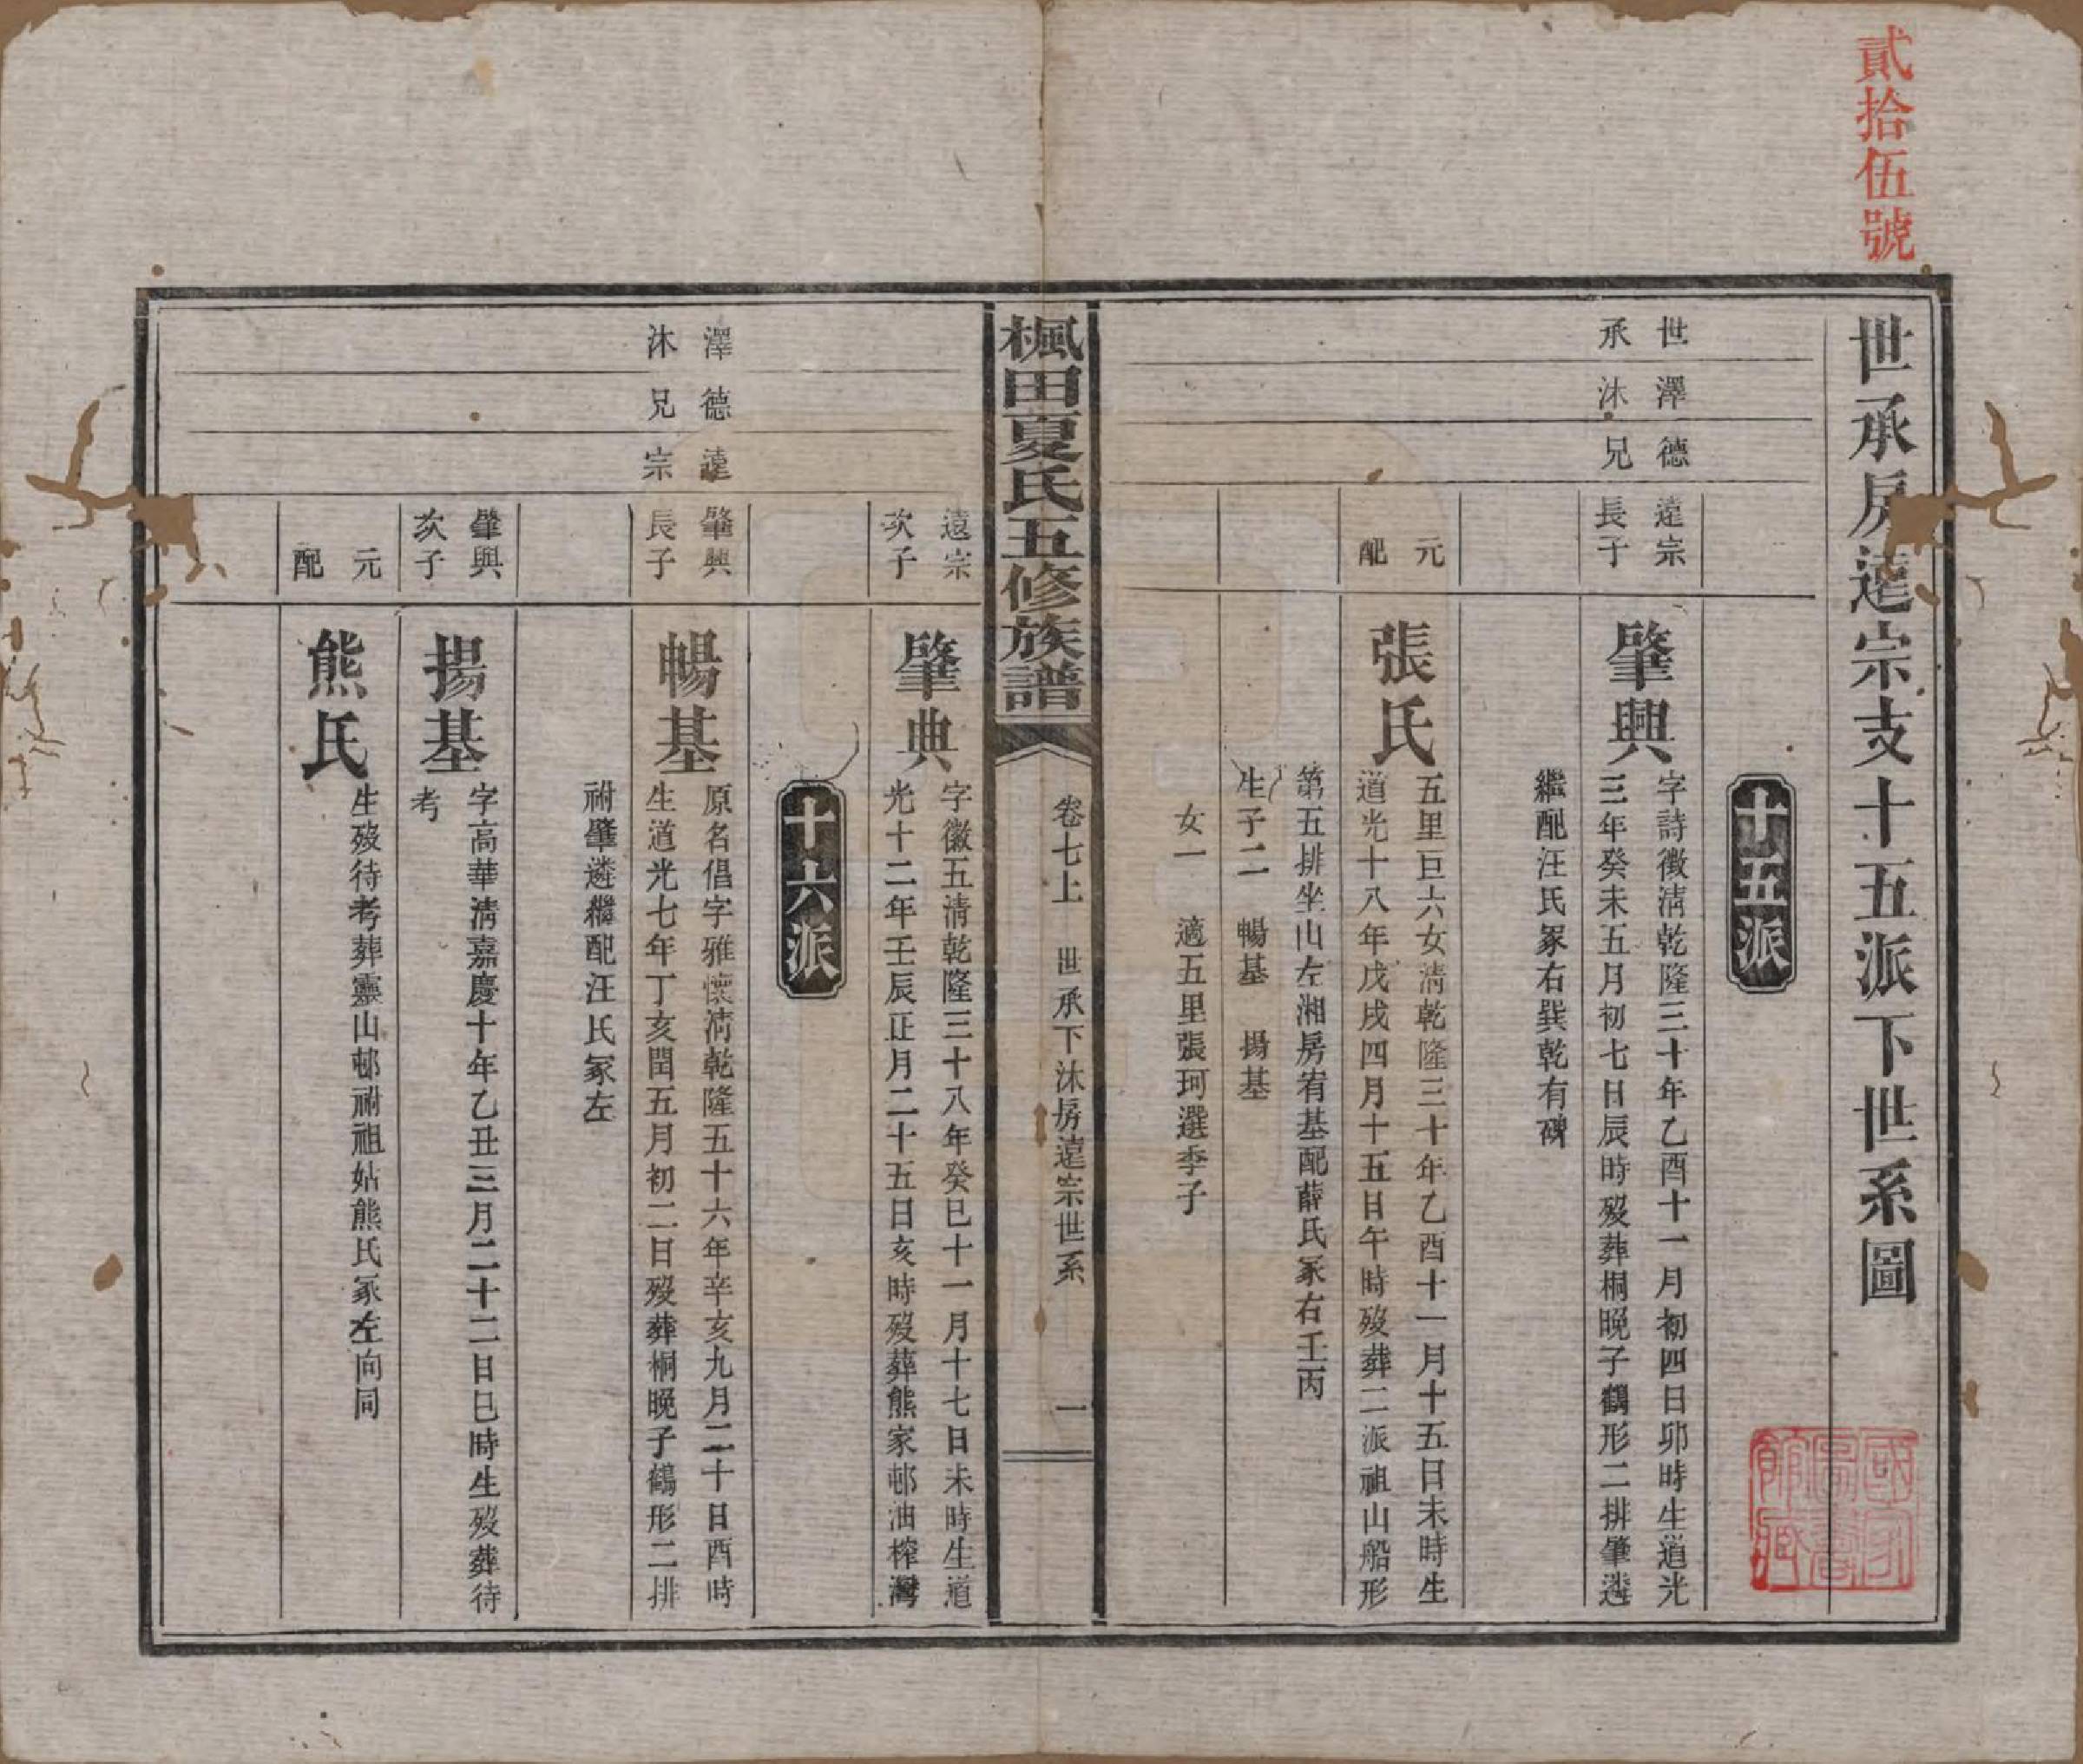 貳拾伍號
世承房遠宗支十五派下世系圖
十五派
世澤德
承沐兄
遠宗
長子
肇興
字詩徵清乾隆三十年乙酉十一月初四日卯時生道光
三年癸未五月初七日辰時歿葬桐晚子鶴形二排肇遴
繼配汪氏冢右巽乾有碑
元
配
張氏
五里巨六女清乾隆三十年乙酉十一月十五日未時生
道光十八年戊戌四月十五日午時歿葬二派祖山船形
第五排坐山左湘房宥基配薛氏冢右壬丙
生子二 暢基 揚基
女一 適五里張珂選季子
楓田夏氏五修族譜
卷七上 世承下沐房遠宗世系
一
遠宗
次子
肇典
字徽五清乾隆三十八年癸巳十一月十七日未時生道
光十二年壬辰正月二十五日亥時歿葬熊家邨油榨灣
十六派
澤德遠
沐兄宗
肇興
長子
暢基
原名倡字雅懷清乾隆五十六年辛亥九月二十日酉時
生道光七年丁亥閏五月初二日歿葬桐晚子鶴形二排
祔肇遴繼配汪氏冢左
肇興
次子
揚基
字高華清嘉慶十年乙丑三月二十二日巳時生歿葬待
考
元
配
熊氏
生歿待考葬靈山邨祔祖姑熊氏冢左向同
國家圖書館藏